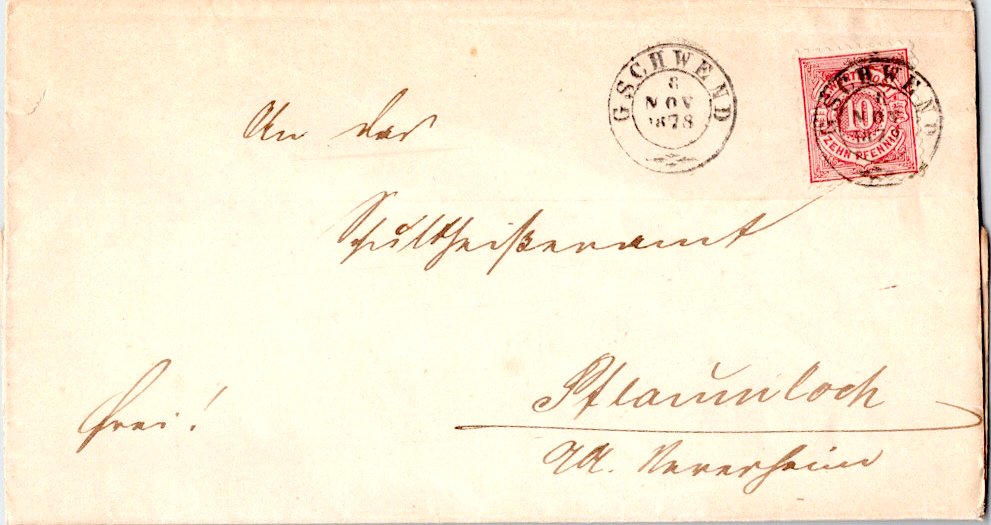 GSCHWEND
8
NOV
1878
GSCHWEND
NOV
10
ZEHN PFENNIG
An das
Schultheißenamt
frei!
Pflaumloch
OA. Neresheim